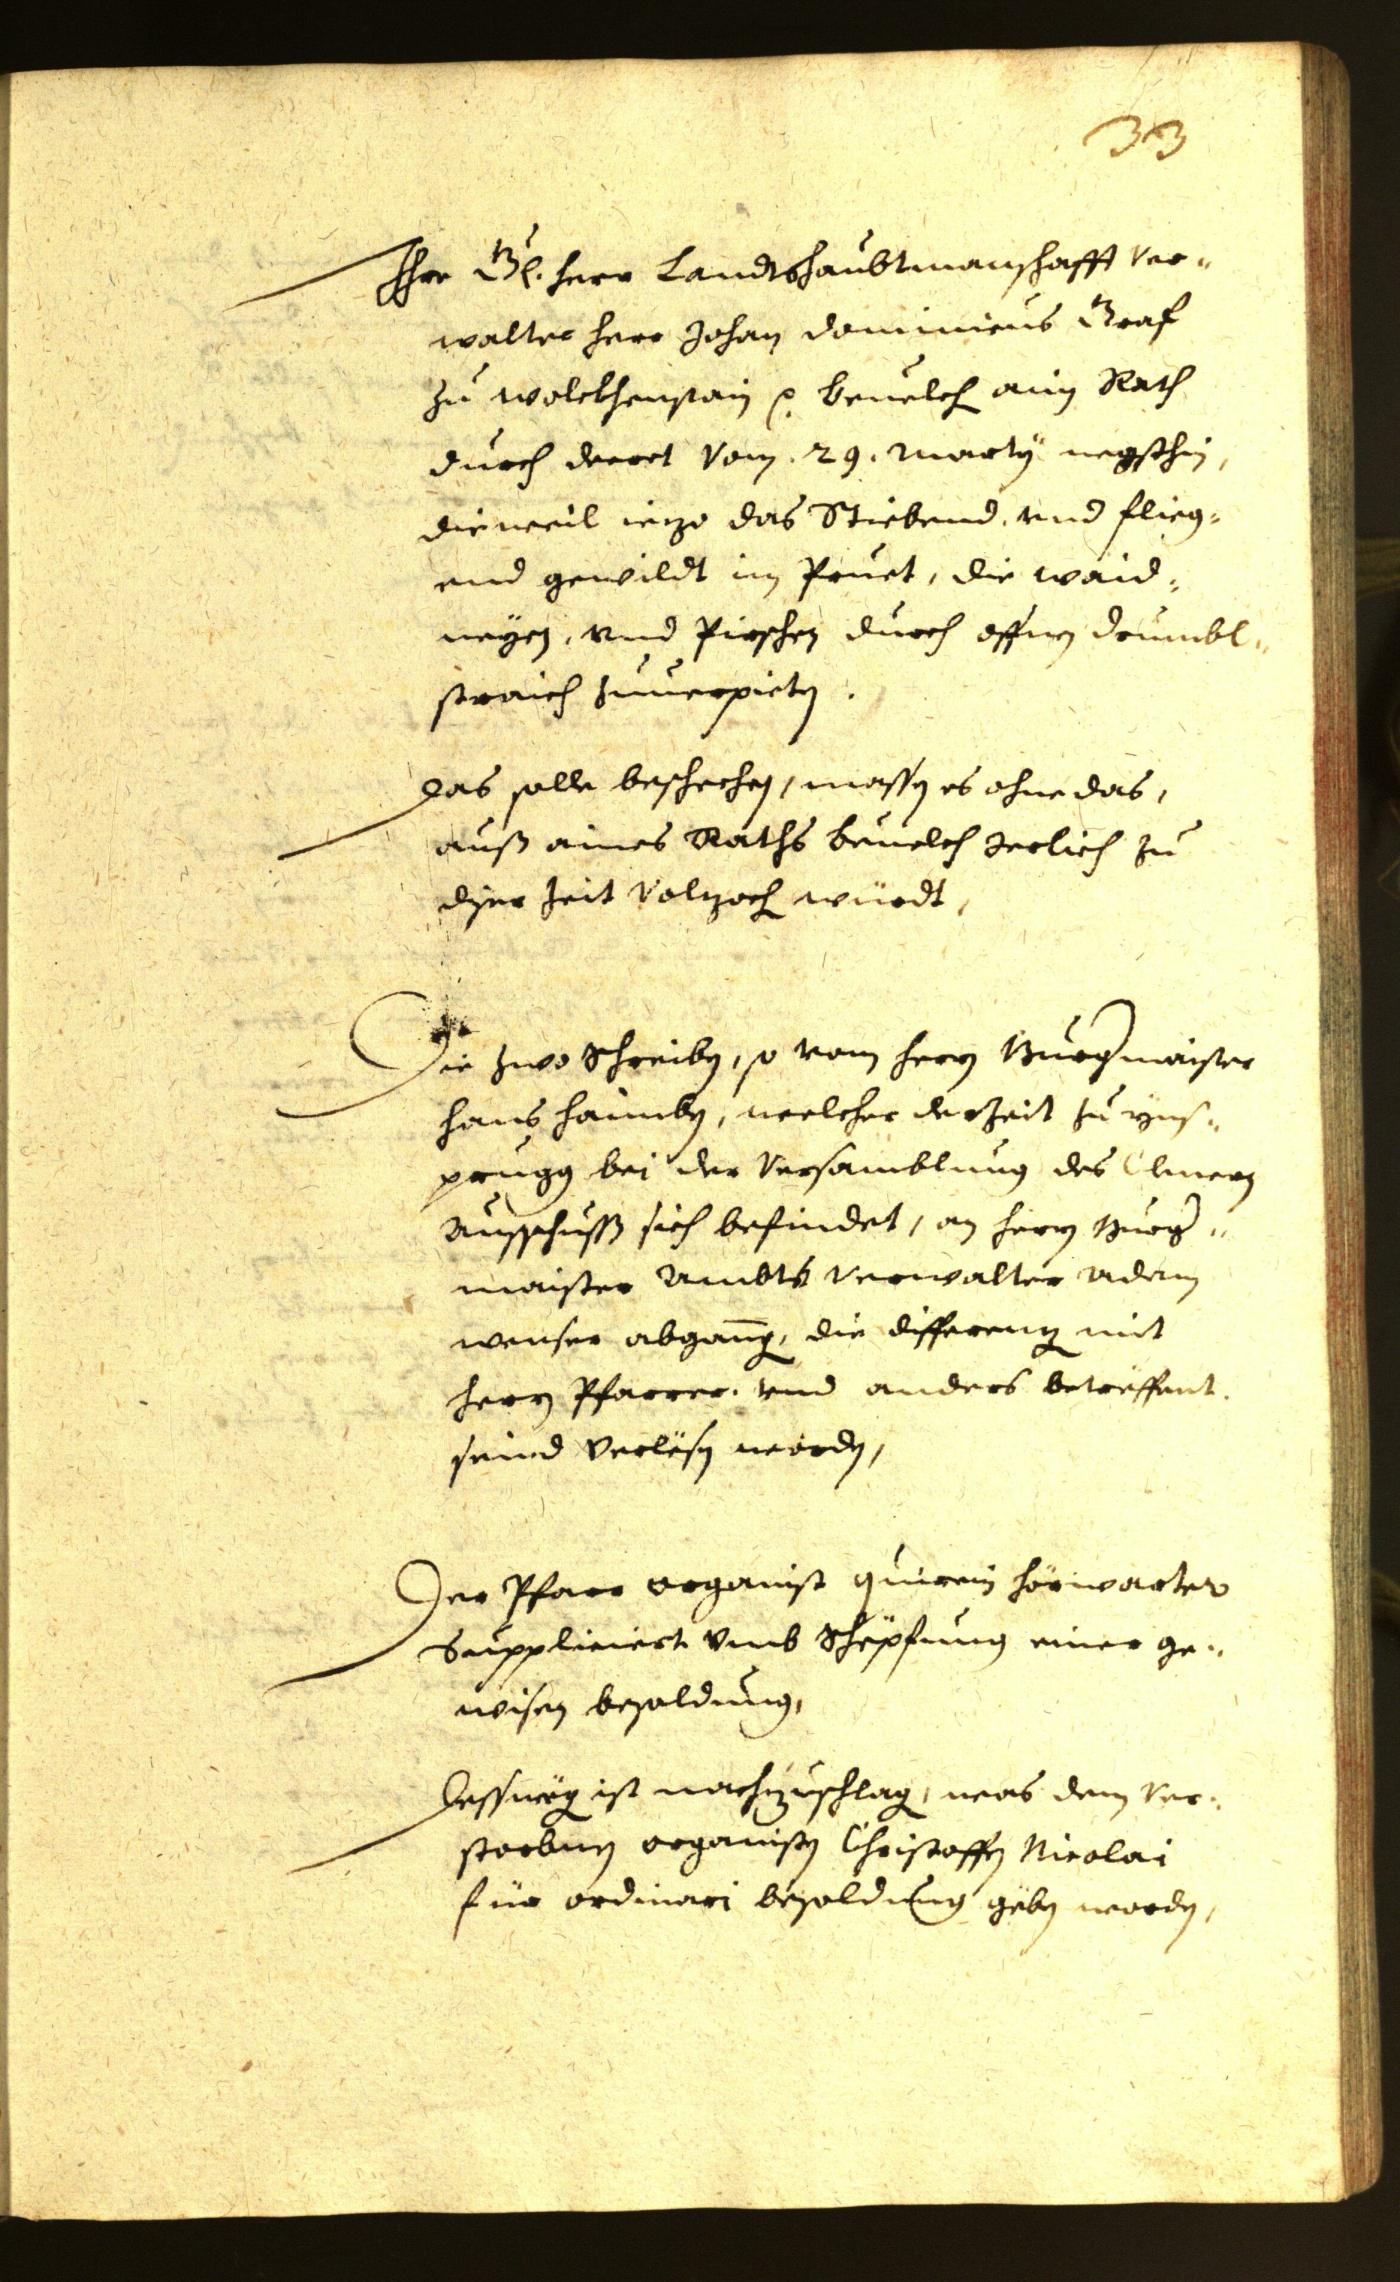 33
Ihre Gl. herr Landtshaubtmanschafft Ver-
walter herr Johan Dominicus Graf
zu Wolckhenstain p. beuelch aim Rath
durch decret Vom .29. Marty negsthin,
dieweil iezo das Stiebend, vnd flieg-
end gewildt im Pruet, die waid-
neyen, vnd Pirschen durch offnen drumbl-
straich zuuerpieten.
Das solle beschechen, massen es ohne das,
auß aines Raths beuelch Jerlich zu
diser Zeit Volzochen würdt,
Die zwo Schreiben, so vom herrn Burgmaister
hans haimben, welcher derzeit zu Yns-
prugg bei der Versamblung des Clenern
Ausschuss sich befindet, an herrn Burg-
maister Ambts Verwalter Adam
wenser abgangen, die differenz mit
herrn Pfarrer. vnd anders betreffent.
seind Verlesen worden,
Der Pfarr organist quirein hörwarter
Suppliciert vmb Schepfung einer ge-
wisen besoldung,
Dessweg ist nachzuschlagen, was dem Ver-
storbnen organisten Christoffen Nicolai
für ordinari besoldung geben worden,